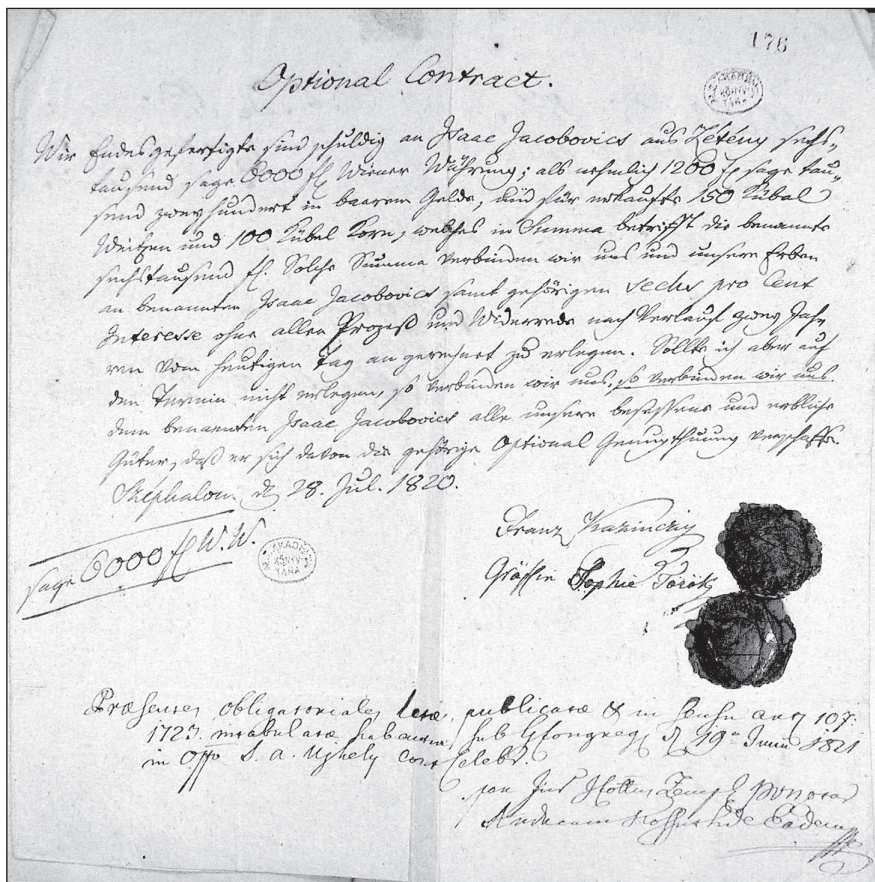 176
Optional Contract.
Wir Endesgefertigte sind schuldig an Isaac Jacobovics aus Zétény sechs-
tausend sage 6000 fl Wiener Währung; als nehmlich 1200 fl sage tau-
send zweyhundert in baarem Gelde, und für erkaufte 150 Kübel
Weitzen und 100 Kübel Korn, welches in Summa betrifft die benannte
sechstausend fl. Solche Summa verbinden wir uns und unsere Erben
an benannten Isaac Jacobovics samt gehörigen sechs pro Cent
Interesse ohne allen Prozeß und Widerrede nach Verlauf zwey Jah-
ren vom heutigen Tag an gerechnet zu erlegen. Sollte ich aber auf
den Termin nicht erlegen, so verbinden wir uns, so verbinden wir uns
dem benannten Isaac Jacobovics alle unsere besessene und erbliche
Güter, daß er sich davon die gehörige Optional Genugthuung verschaffe.
Széphalom 28. Jul. 1820.
sage 6000 fl W. W.
Franz Kazinczy
Gräffin Sophie Török
Præsentes obligatoriales publicatæ & in 107.
1723. 19 Junii 1821
in S. a. Ujhely celebr.